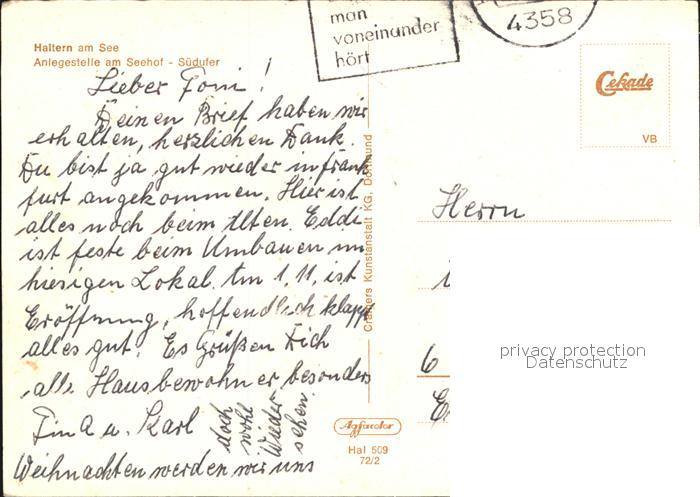 Haltern am See
Anlegestelle am Seehof - Südufer
man
voneinander
hört
4358
Cekade
VB
Lieber Toni!
Deinen Brief haben wir
erhalten, herzlichen Dank.
Du bist ja gut wieder in Frank
furt angekommen. Hier ist
alles noch beim Alten. Eddi
ist feste beim Umbauen im
hiesigen Lokal. Am 1.11. ist
Eröffnung, hoffendlich klapp
alles gut. Es Grüßen Dich
alle Hausbewohner besonders
Tina u. Karl
Weihnachten werden wir uns
doch
wohl
Wieder
sehen.
Cramers Kunstanstalt KG, Dortmund
Agfacolor
Hal 509
72/2
Herrn
6
privacy protection
Datenschutz